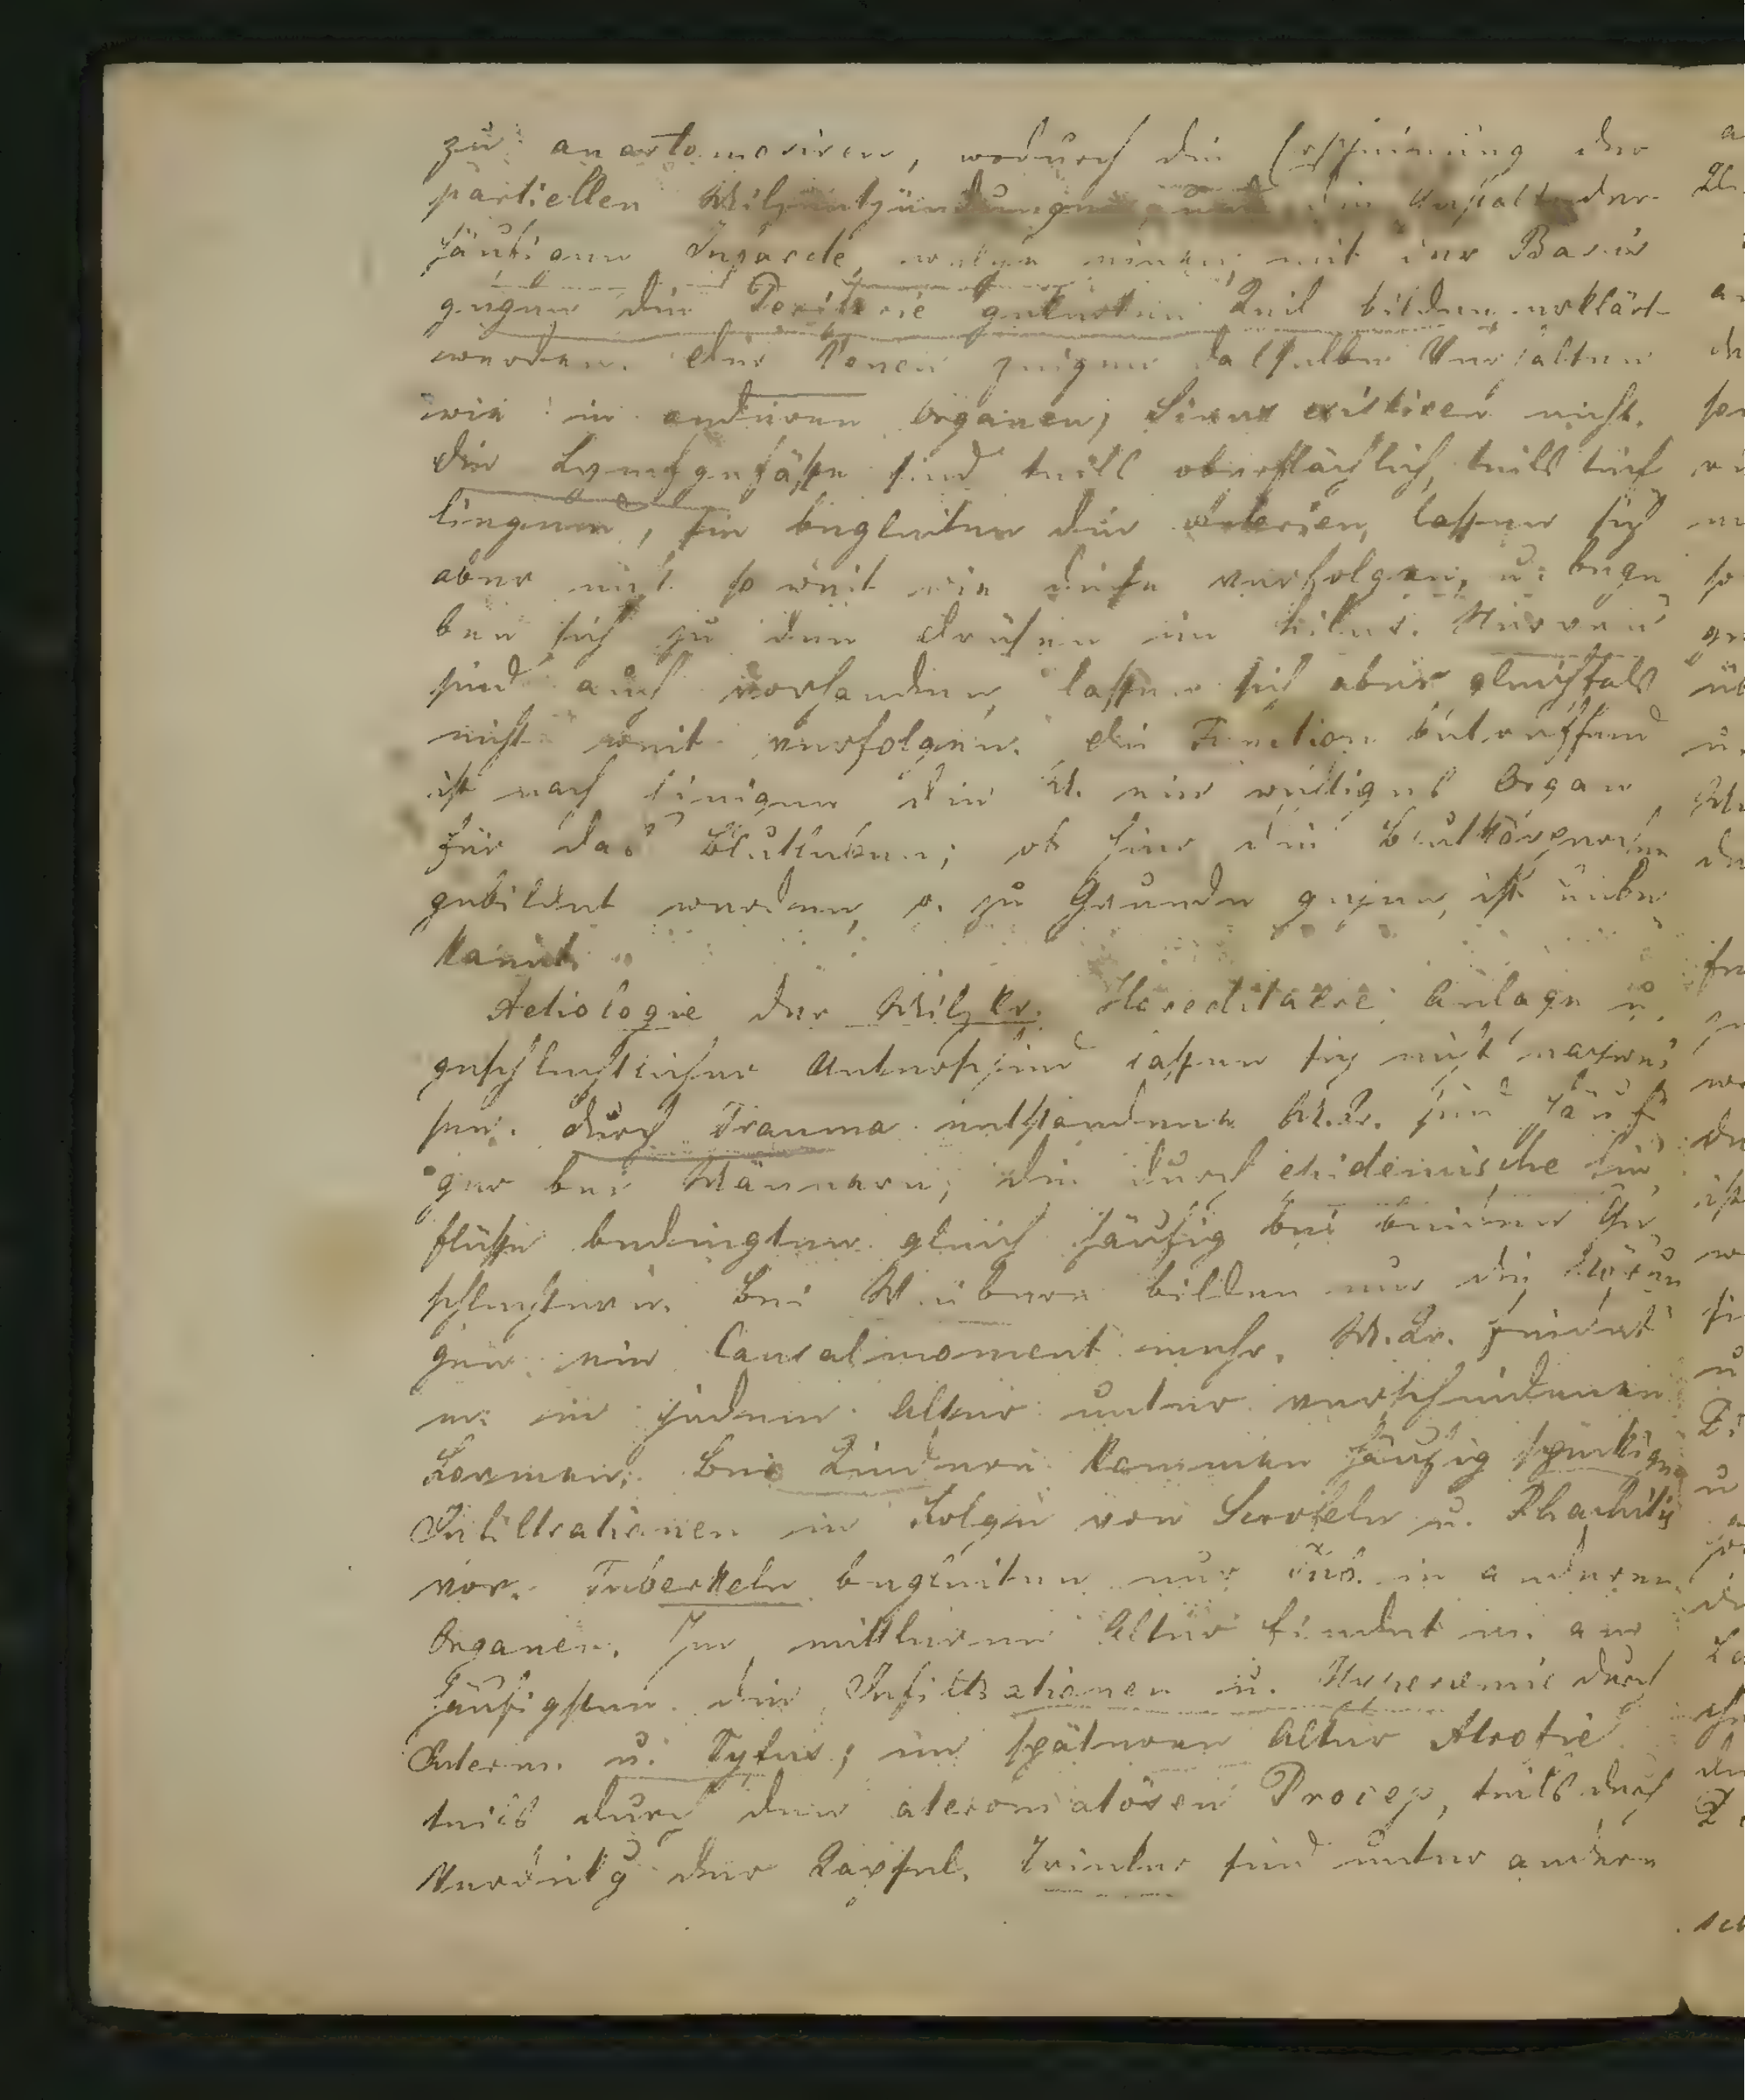 zu anastomosiren, wodurch die Erscheinung der
partiellen Milzentzündungen und die Gestalt der
häufigen Infarcte, welche einen, mit der Basis
gegen die Periferie gekehrten Keil bilden, erklärt
werden. Die Venen zeigen dasselbe Verhalten
wie in anderen Organen, Sinus existiren nicht.
Die Lymfgefäße sind teils oberflächlich, teils tief
liegende, sie begleiten die Arterien, laßen sich
aber nicht so weit wie diese verfolgen, u. bege
ben sich zu den Drüsen im Hilus. Nerven
sind auch vorhanden, laßen sich aber gleichfals
nicht weit verfolgen. Die Function betreffend
ist nach Einigen die M. ein wichtiges Organ
für das Blutleben; ob hier die Blutkörperchen
gebildet werden, o. zu Grunde gehen, ist unbe
kannt.
Aetiologie der Milzkr. Hereditaere Anlage u.
geschlechtlicher Unterschied laßen sich nicht nachwei
sen. Durch Trauma entstandene M.Kr. sind häufi
ger bei Männern, die durch epidemische Ein
flüße bedingten gleich häufig bei beiden Ge
schlechtern. Bei Weibern bilden nur die
gen ein Causalmoment mehr. M.Kr. findet
m. in jedem Alter unter verschiedenen
Formen. Bei Kindern kommen häufig speckige
Infiltrationen in Folge von Scrofeln u. Rhachitis
vor. Tuberkeln begleiten nur Tub. in anderen
Organen. Im mittleren Alter findet m. am
häufigsten die Infiltrationen u. Hyperemie durch
Interm. u. Tyfus; im späteren Alter Atrofie
teils durch den ateromatösen Proceß, teils durch
Verdickg der Kapsel. Trinker sind unter andern